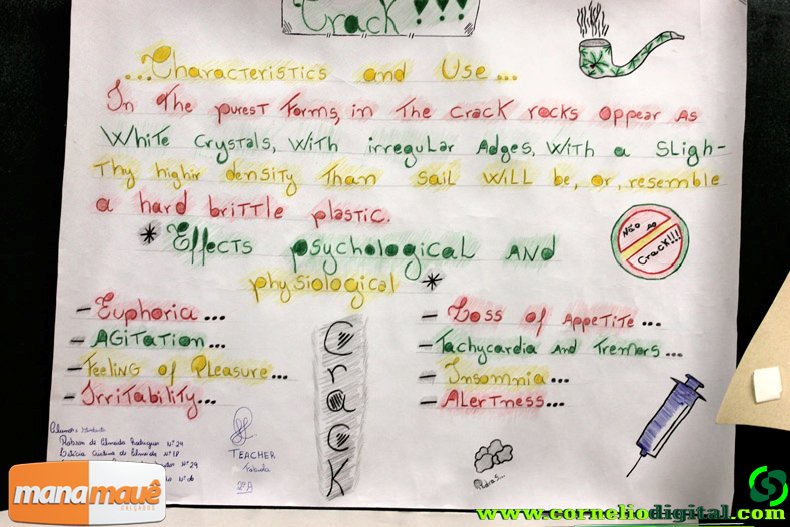 Crack !!!
...Characteristics and Use...
In The purest forms, in The crack rocks appear as
White crystals, with irregular Adges, with a sligh-
Thy highir density Than sail will be, or, resemble
a hard brittle plastic.
NÃO AO
Crack!!!
* Effects psychological AND
physiological *
- Euphoria...
- AGiTATion...
- Feeling of Pleasure...
- Irritability...
Crack
- Loss of Appetite...
- Tachycardia And Tremors...
- Insomnia...
- Alertness...
Robson de Almeida Rodrigues Nº 24
Letícia Cristina de Almeida Nº 18
Nº 29
Nº 06
TEACHER
2ºA
Pedras...
manamauê
CALÇADOS
www.corneliodigital.com